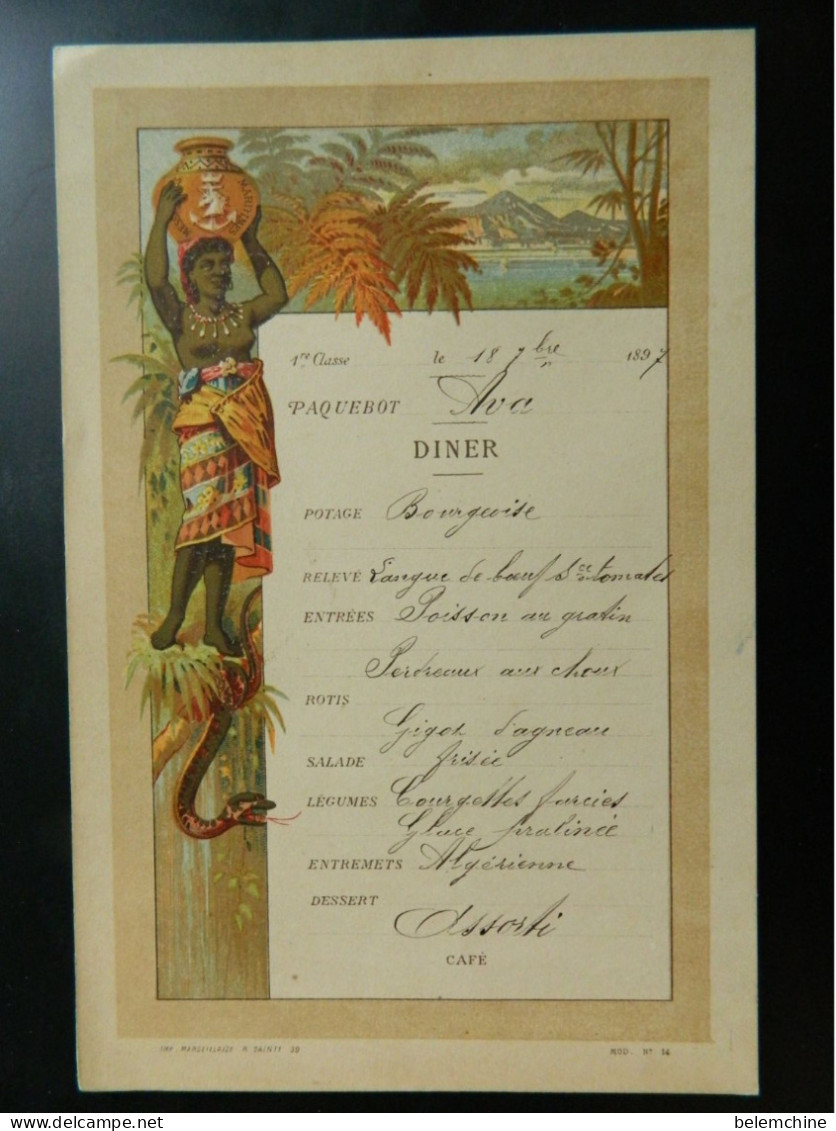 MARITIMES
1re Classe le 18 7bre 1897
PAQUEBOT Ava
DINER
POTAGE Bourgeoise
RELEVÉ Langue de bœuf sce tomates
ENTRÉES Poisson au gratin
Perdreaux aux choux
ROTIS
Gigot d'agneau
SALADE frisée
LÉGUMES Courgettes farcies
Glace pralinée
ENTREMETS Algérienne
DESSERT
Assorti
CAFÉ
IMP. MARSEILLAISE R. SAINTE 39
MOD. No 14
belemchine